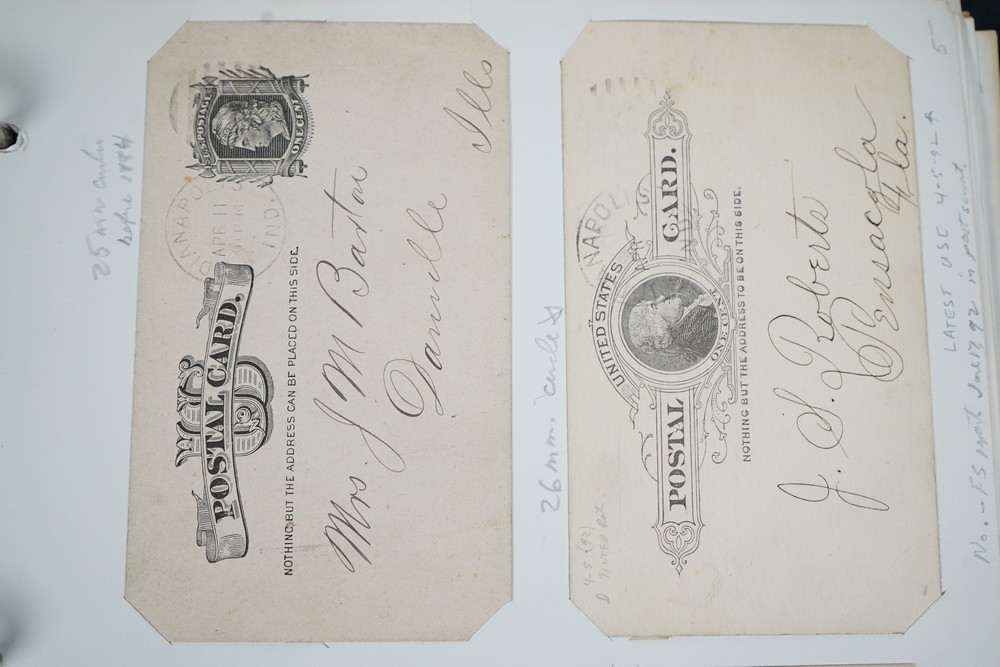 25 mm circles
before 1884
U.S. POSTAGE
ONE CENT
APR 11
IND.
US
POSTAL CARD.
NOTHING BUT THE ADDRESS CAN BE PLACED ON THIS SIDE.
Mrs. J M Barton
Danville
Ills
26 mm. circle
NAPOLI
UNITED STATES
POSTAL CARD.
ONE CENT
NOTHING BUT THE ADDRESS TO BE ON THIS SIDE.
J. S. Roberts
Pensacola
Fla.
4-5 (92)
LATEST USE 4-5-92 5-